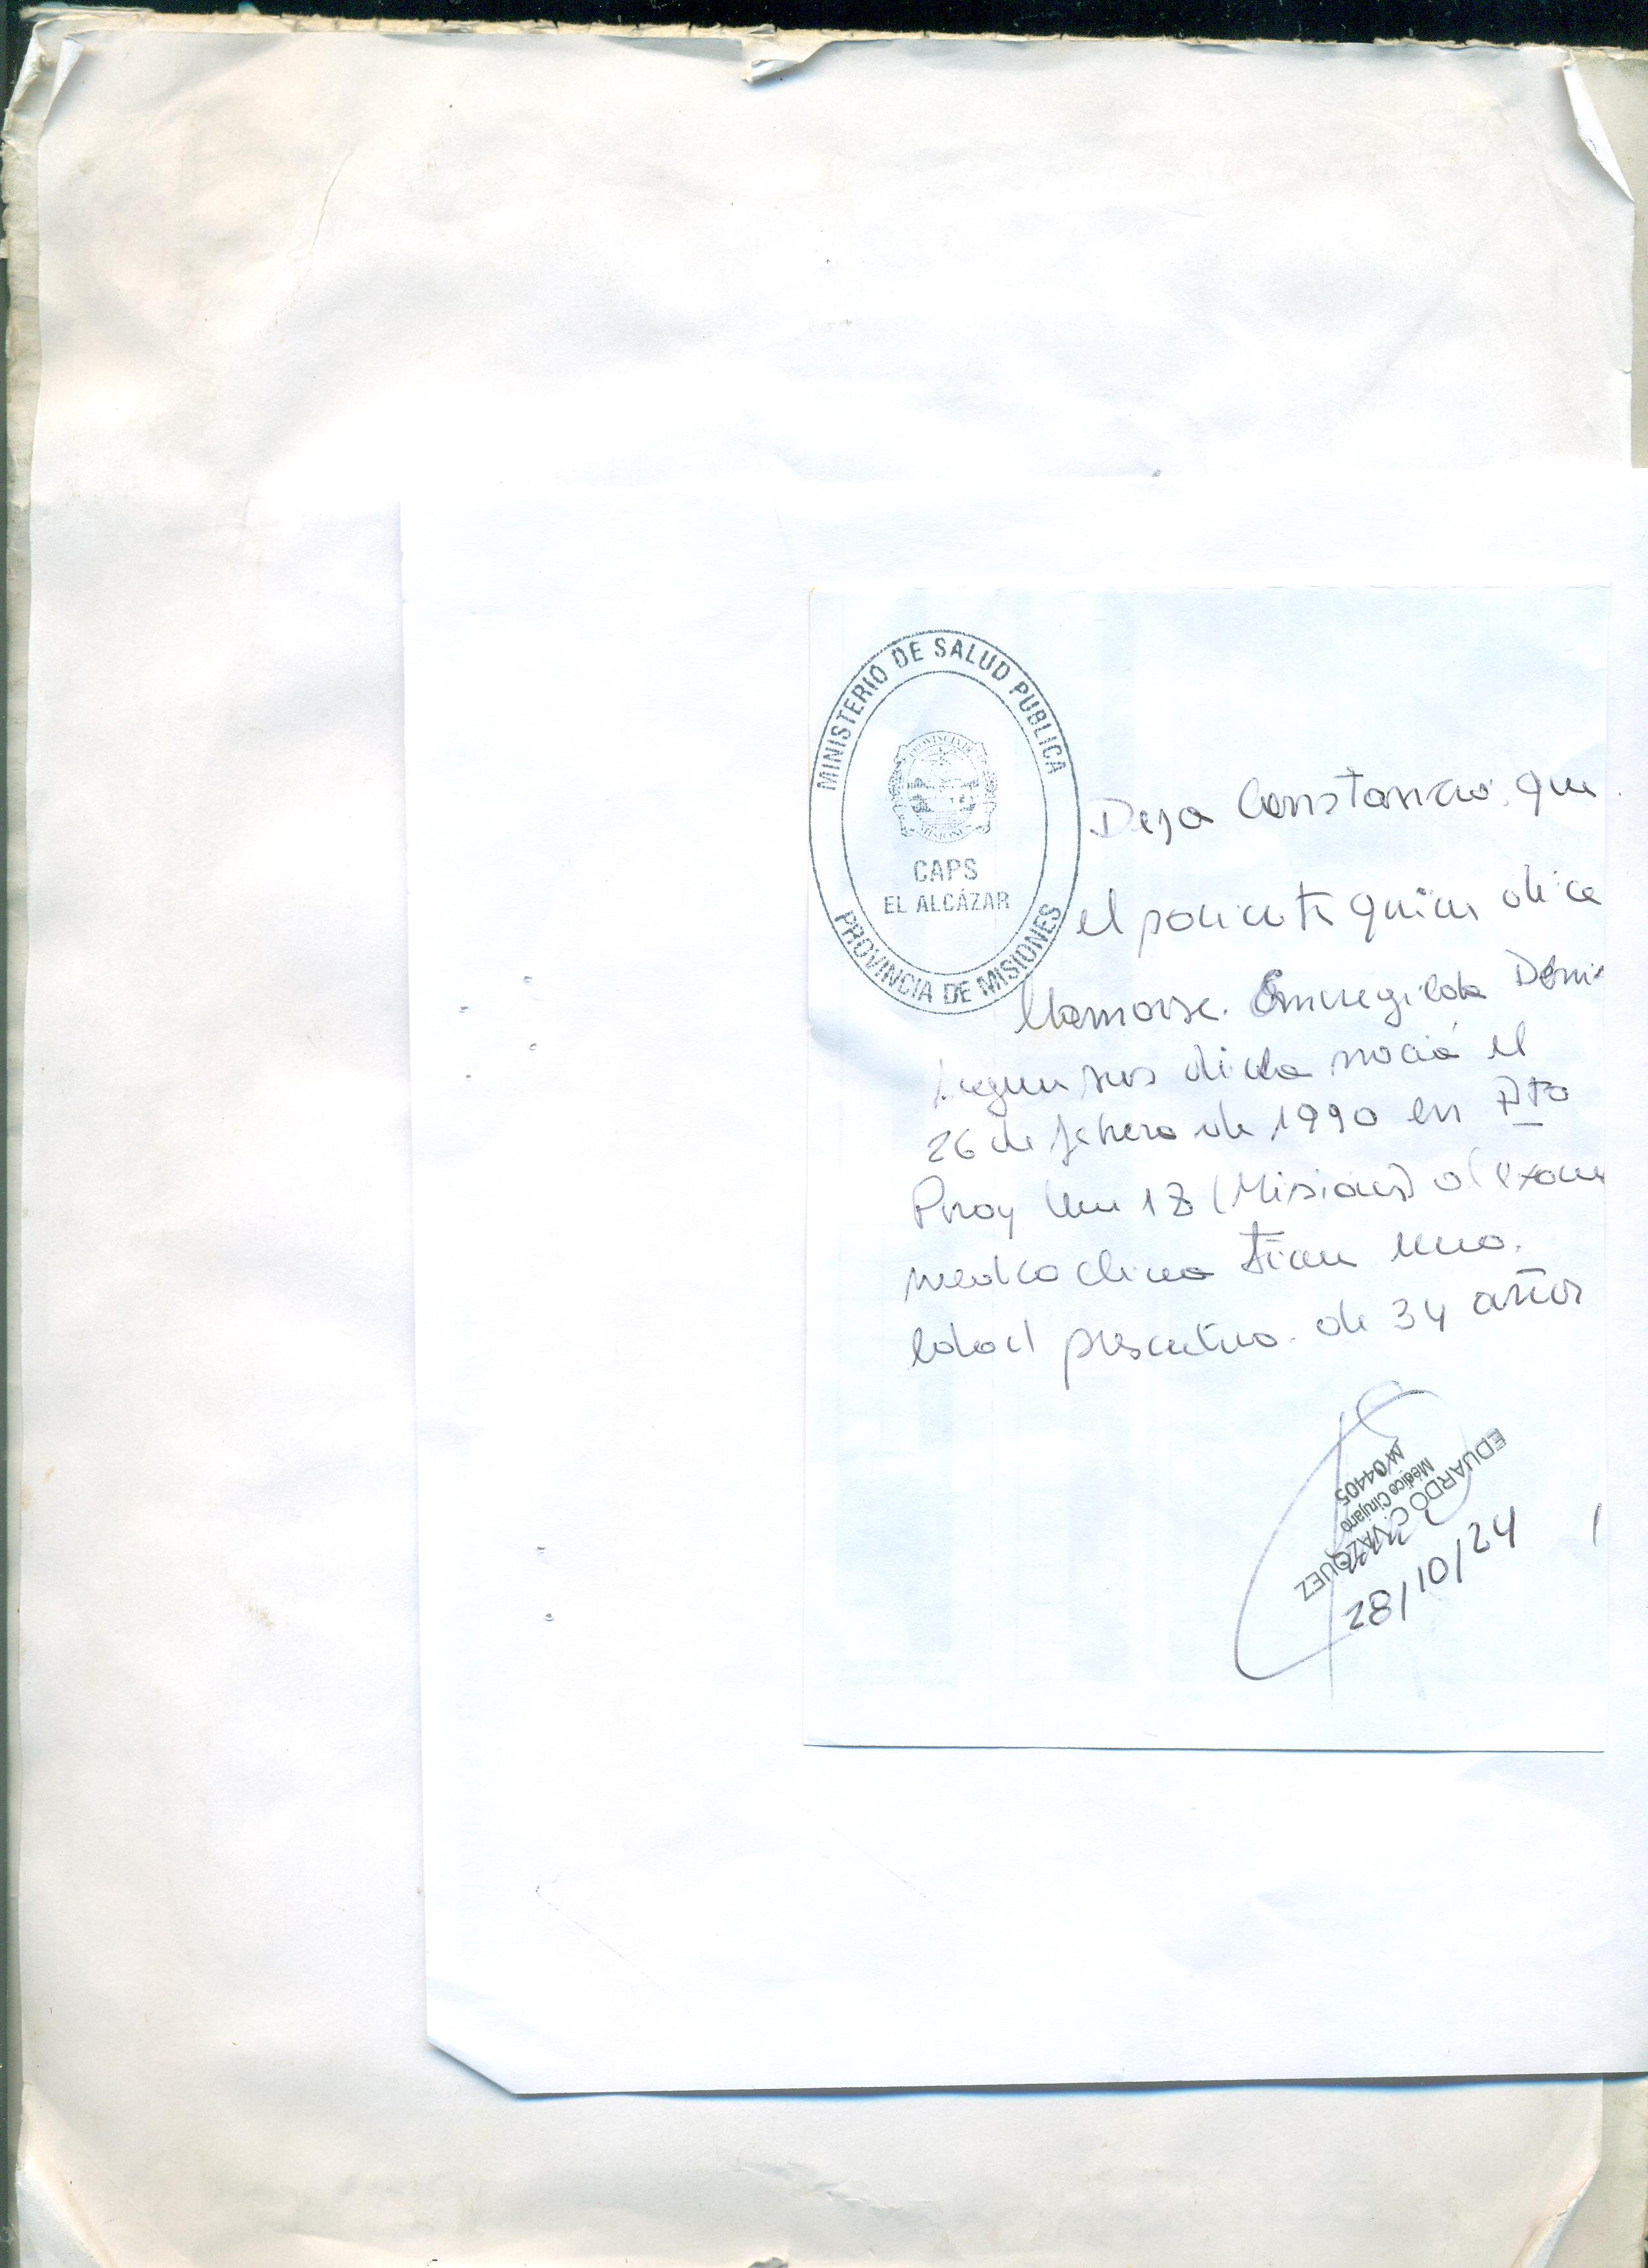 MINISTERIO DE SALUD PUBLICA
PROVINCIA DE MISIONES
CAPS
EL ALCÁZAR
PROVINCIA DE MISIONES
Dejo Constancia, que
el paciente quien dice
llamarse. Emeregilda
segun sus dicho nació el
26 de febrero de 1990 en Pto
Piray km 18 (Misiones) al exam
medico clinico tiene una.
edad presuntiva. de 34 años
EDUARDO C. VAZQUEZ
Médico Cirujano
M 04405
28/10/24